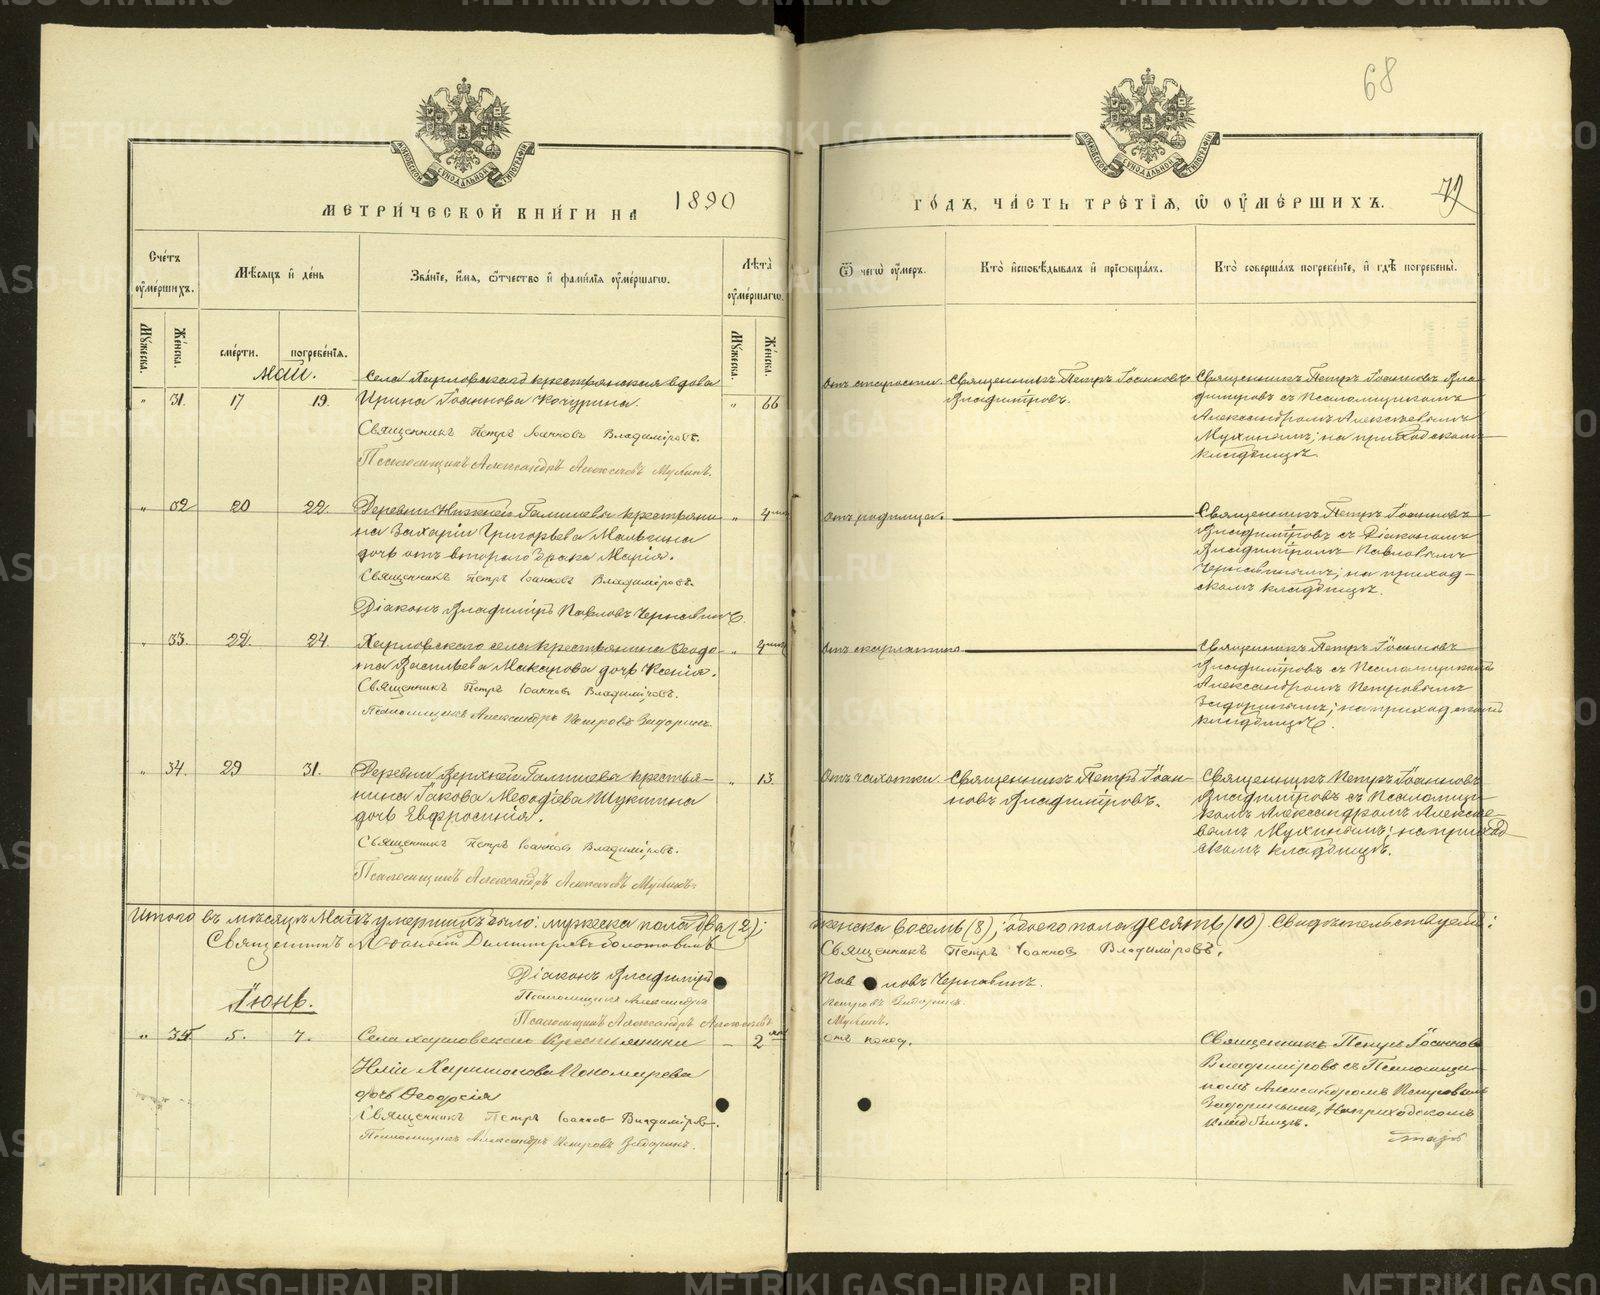 68
МЕТРИ́ЧЕСКОЙ КНИ́ГИ НА 1890
ГО́ДЪ, ЧА́СТЬ ТРЕ́ТІѦ, Ѿ ОУ҆МЕ́РШИХЪ.
79
Сче́тъ оу҆ме́ршихъ.
Мѣ́сяцъ и҆ де́нь
Зва́ніе, и҆́мѧ, ѻ҆́тчество и҆ фами́лїѧ оу҆ме́ршагѡ.
Лѣ́та оу҆ме́ршагѡ.
Ѿ чегѡ̀ оу҆́меръ.
Кто̀ и҆сповѣ́дывалъ и҆ прїѡбща́лъ.
Кто̀ соверша́лъ погребе́нїе, и҆ гдѣ̀ погребены̀.
Мꙋ́жеска.
Же́нска.
сме́рти.
погребе́нїѧ.
Мꙋ́жеска.
Же́нска.
Май.
Села Харловскаго крестьянская вдова
" 31. 17 19. Ирина Іоаннова Кочурина. " 66
Священникъ Петръ Іоанновъ Владиміровъ.
Псаломщикъ Александръ Алексѣевъ Мухинъ.
отъ старости.
Священникъ Петръ Іоанновъ
Владиміровъ.
Священникъ Петръ Іоанновъ Вла-
диміровъ съ Псаломщикомъ
Александромъ Алексѣевымъ
Мухинымъ; на приходскомъ
кладбищѣ.
" 32 20 22. Деревни Нижней Галишевы крестьяни-
на Захаріи Григорьева Мальгина
дочь отъ второго брака Марія.
Священникъ Петръ Іоанновъ Владиміровъ.
Діаконъ Владиміръ Павловъ Чернавинъ.
отъ родимца.
Священникъ Петръ Іоанновъ
Владиміровъ съ Діакономъ
Владиміромъ Павловымъ
Чернавинымъ; на приход-
скомъ кладбищѣ.
" 33. 22. 24. Харловскаго села крестьянина Ѳеодо-
та Васильева Макарова дочь Ксенія.
Священникъ Петръ Іоанновъ Владиміровъ.
Псаломщикъ Александръ Петровъ Задоринъ.
отъ скарлатины
Священникъ Петръ Іоанновъ
Владиміровъ съ Псаломщикомъ
Александромъ Петровымъ
Задоринымъ; на приходскомъ
кладбищѣ.
" 34. 29 31. Деревни Верхней Галишевы крестья-
нина Іакова Меѳодіева Шукшина
дочь Евфросинія.
" 13.
Священникъ Петръ Іоанновъ Владиміровъ.
Псаломщикъ Александръ Алексѣевъ Мухинъ.
Отъ чахотки
Священникъ Петръ Іоан-
новъ Владиміровъ.
Священникъ Петръ Іоанновъ
Владиміровъ съ Псаломщи-
комъ Александромъ Алексѣе-
вымъ Мухинымъ; на приход-
скомъ кладбищѣ.
Итого въ мѣсяцѣ Маѣ умершихъ было: мужеска пола два (2);
женска восемь (8); обоего пола десять (10). Свидѣтельствуемъ:
Священникъ Димитріевъ
Священникъ Петръ Іоанновъ Владиміровъ.
Діаконъ Владиміръ Павловъ Чернавинъ.
Псаломщикъ Александръ Петровъ Задоринъ.
Псаломщикъ Александръ Алексѣевъ Мухинъ.
Іюнь.
" 35 5. 7. Села Харловскаго Крестьянина – 2
Иліи Харитонова Пономарева
дочь Ѳеодосія
Священникъ Петръ Іоанновъ Владиміровъ.
Псаломщикъ Александръ Петровъ Задоринъ.
отъ поноса.
Священникъ Петръ Іоанновъ
Владиміровъ съ Псаломщи-
комъ Александромъ Петровымъ
Задоринымъ, на приходскомъ
кладбищѣ.
METRIKI.GASO-URAL.RU